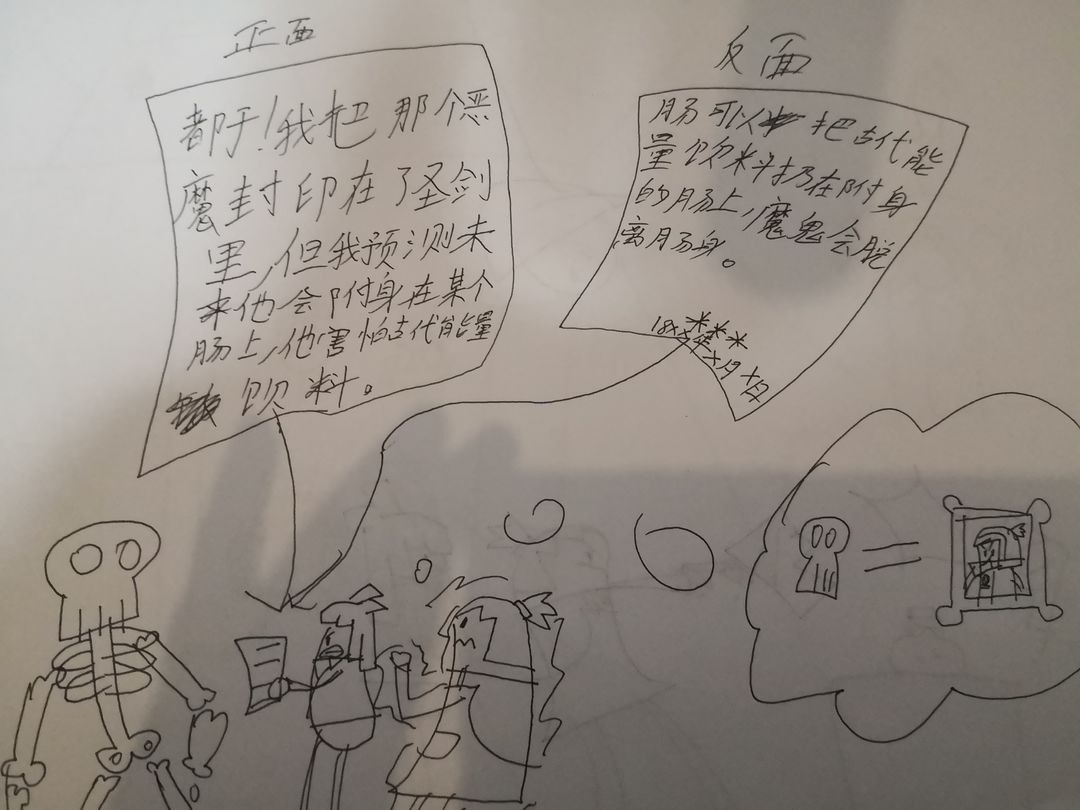 正面
都于!我把那个恶
魔封印在了圣剑
里,但我预测未
来他会附身在某个
肠上,他害怕古代能量
饮料。
反面
肠可以把古代能
量饮料扔在附身
的肠上,魔鬼会脱
离肠身。